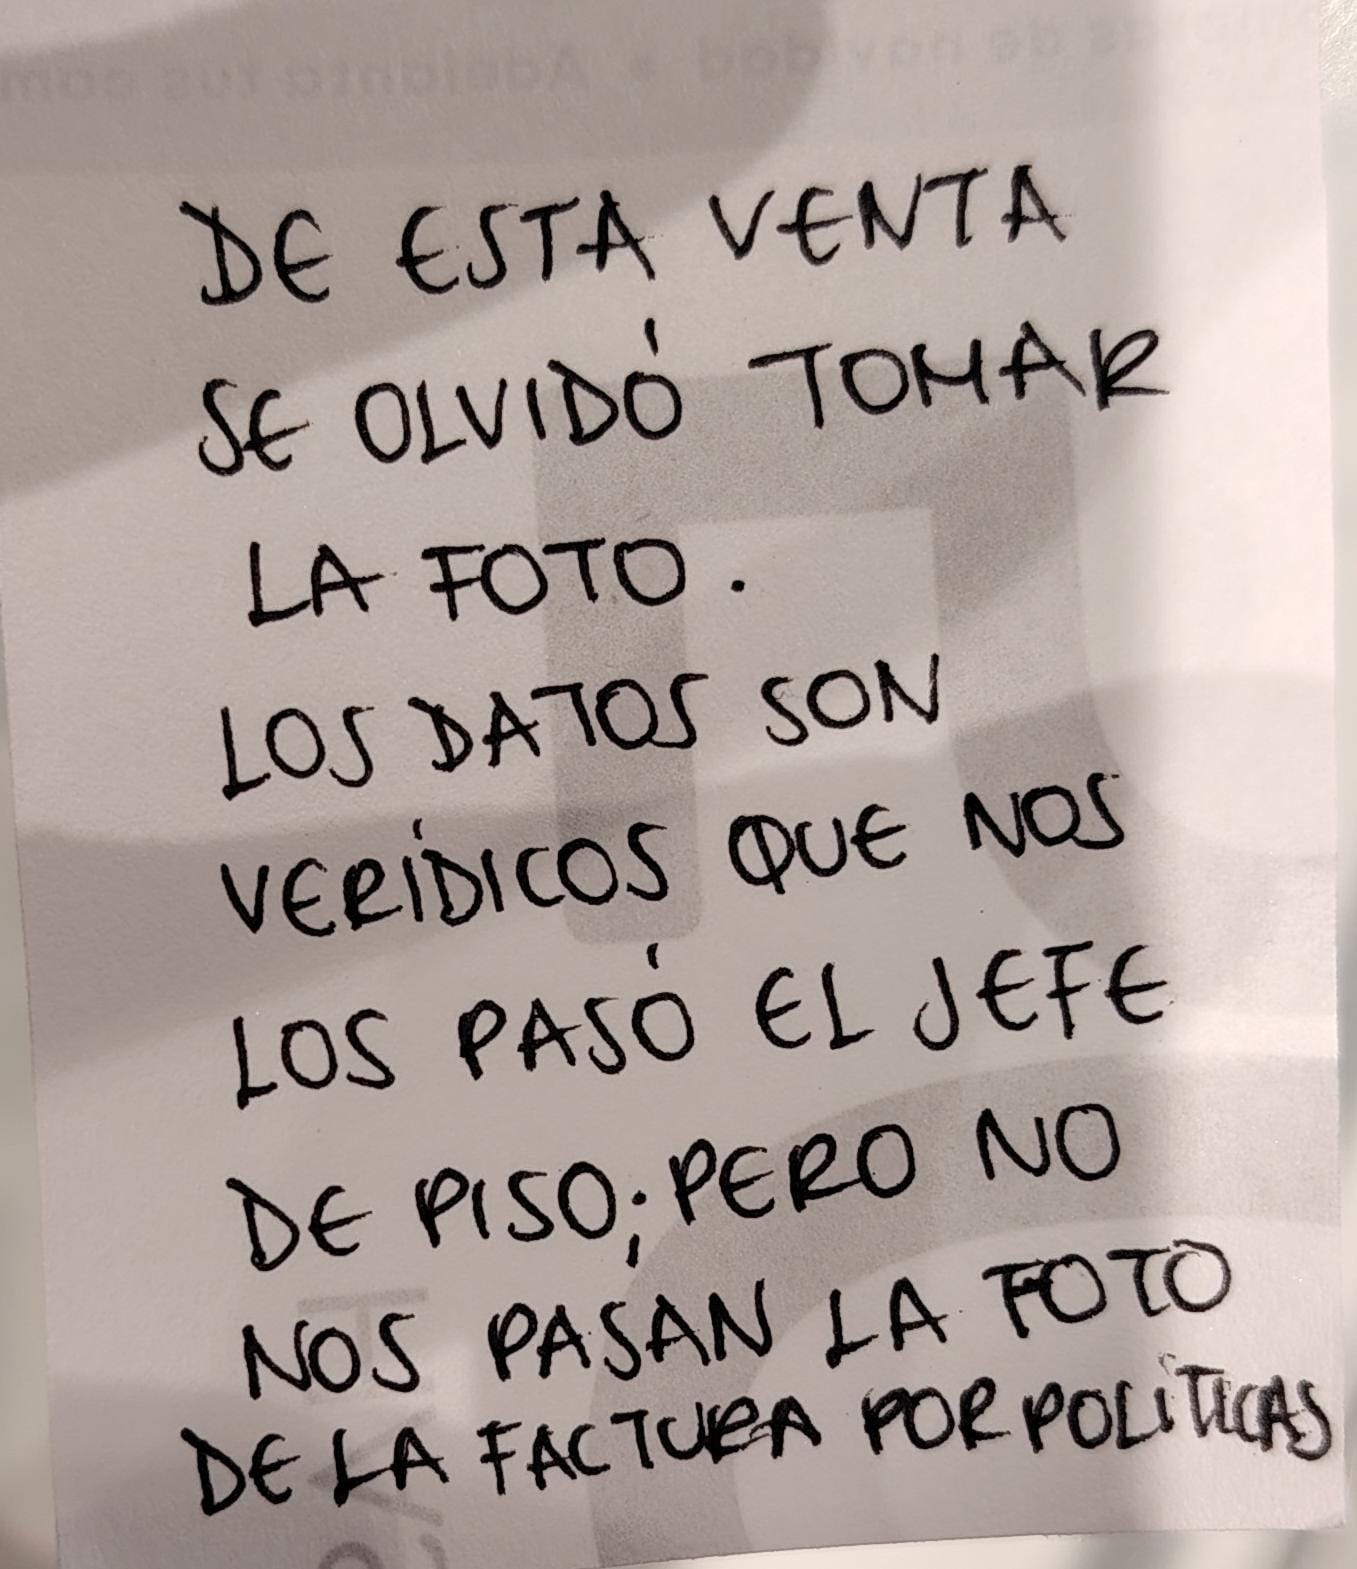 DE ESTA VENTA
SE OLVIDÓ TOMAR
LA FOTO.
LOS DATOS SON
VERÍDICOS QUE NOS
LOS PASÓ EL JEFE
DE PISO; PERO NO
NOS PASAN LA FOTO
DE LA FACTURA POR POLÍTICAS